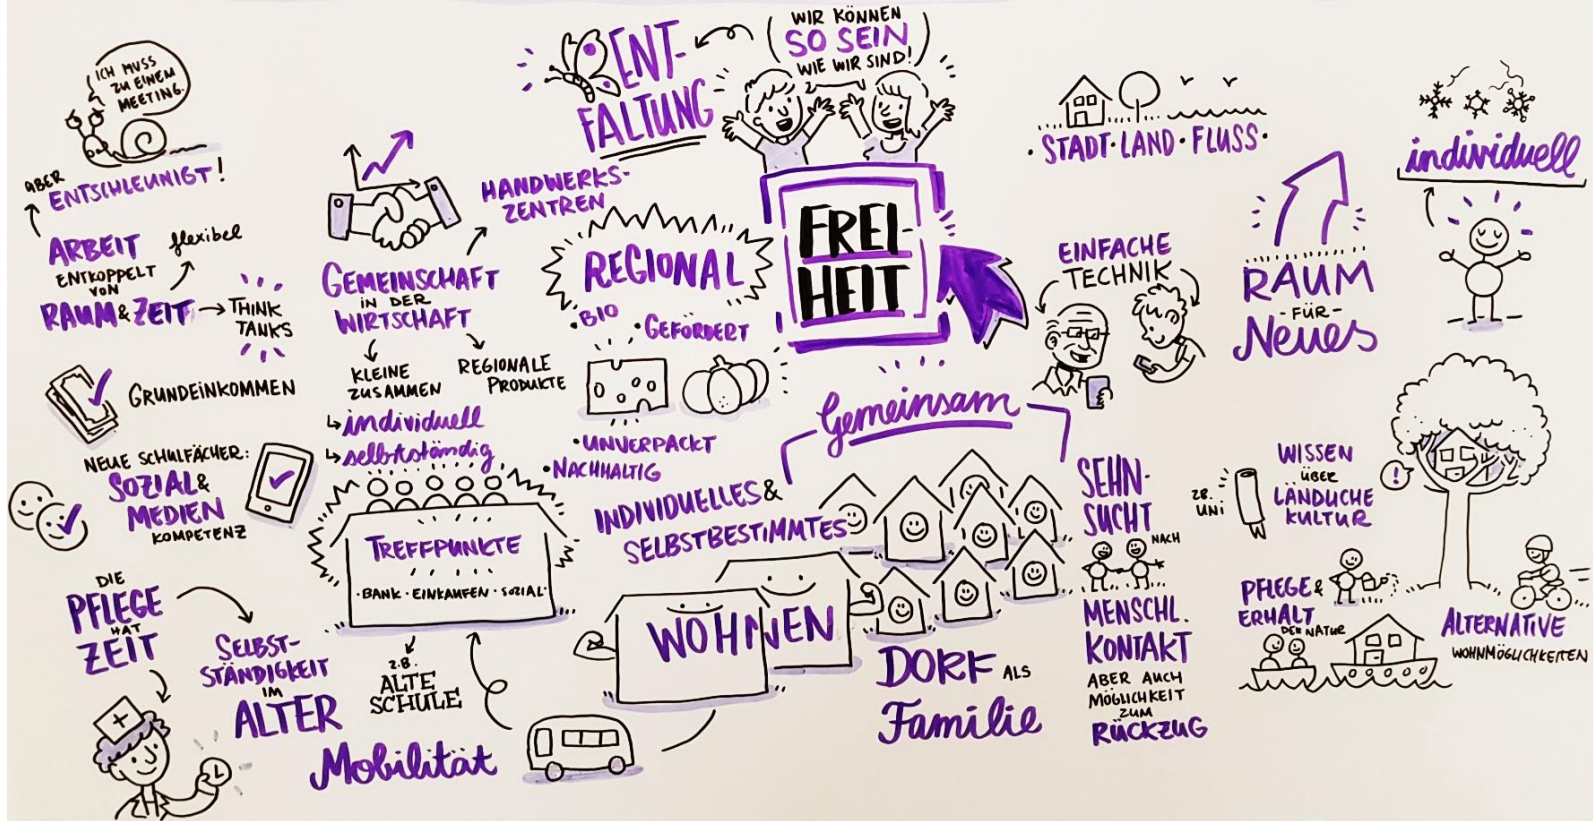 ICH MUSS
ZU EINEM
MEETING.
ABER
ENTSCHLEUNIGT!
ARBEIT
flexibel
ENTKOPPELT
VON
RAUM & ZEIT
THINK
TANKS
GRUNDEINKOMMEN
NEUE SCHULFÄCHER:
SOZIAL &
MEDIEN
KOMPETENZ
DIE
PFLEGE
HAT
ZEIT
SELBST-
STÄNDIGKEIT
IM
ALTER
GEMEINSCHAFT
IN DER
WIRTSCHAFT
HANDWERKS-
ZENTREN
KLEINE
ZUSAMMEN
REGIONALE
PRODUKTE
individuell
selbstständig
TREFFPUNKTE
BANK · EINKAUFEN · SOZIAL ·
Z.B.
ALTE
SCHULE
Mobilität
ENT-
FALTUNG
WIR KÖNNEN
SO SEIN
WIE WIR SIND!
FREI-
HEIT
REGIONAL
· BIO
· GEFÖRDERT
· UNVERPACKT
· NACHHALTIG
Gemeinsam
INDIVIDUELLES &
SELBSTBESTIMMTES
WOHNEN
DORF ALS
Familie
SEHN-
SUCHT
NACH
MENSCHL.
KONTAKT
ABER AUCH
MÖGLICHKEIT
ZUM
RÜCKZUG
· STADT · LAND · FLUSS ·
EINFACHE
TECHNIK
RAUM
- FÜR -
Neues
individuell
WISSEN
ÜBER
LÄNDLICHE
KULTUR
ZB.
UNI
!
PFLEGE &
ERHALT
DER NATUR
ALTERNATIVE
WOHNMÖGLICHKEITEN